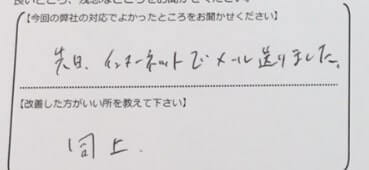 【今回の弊社の対応でよかったところをお聞かせください】
先日、インターネットでメール送りました。
【改善した方がいい所を教えて下さい】
同上.